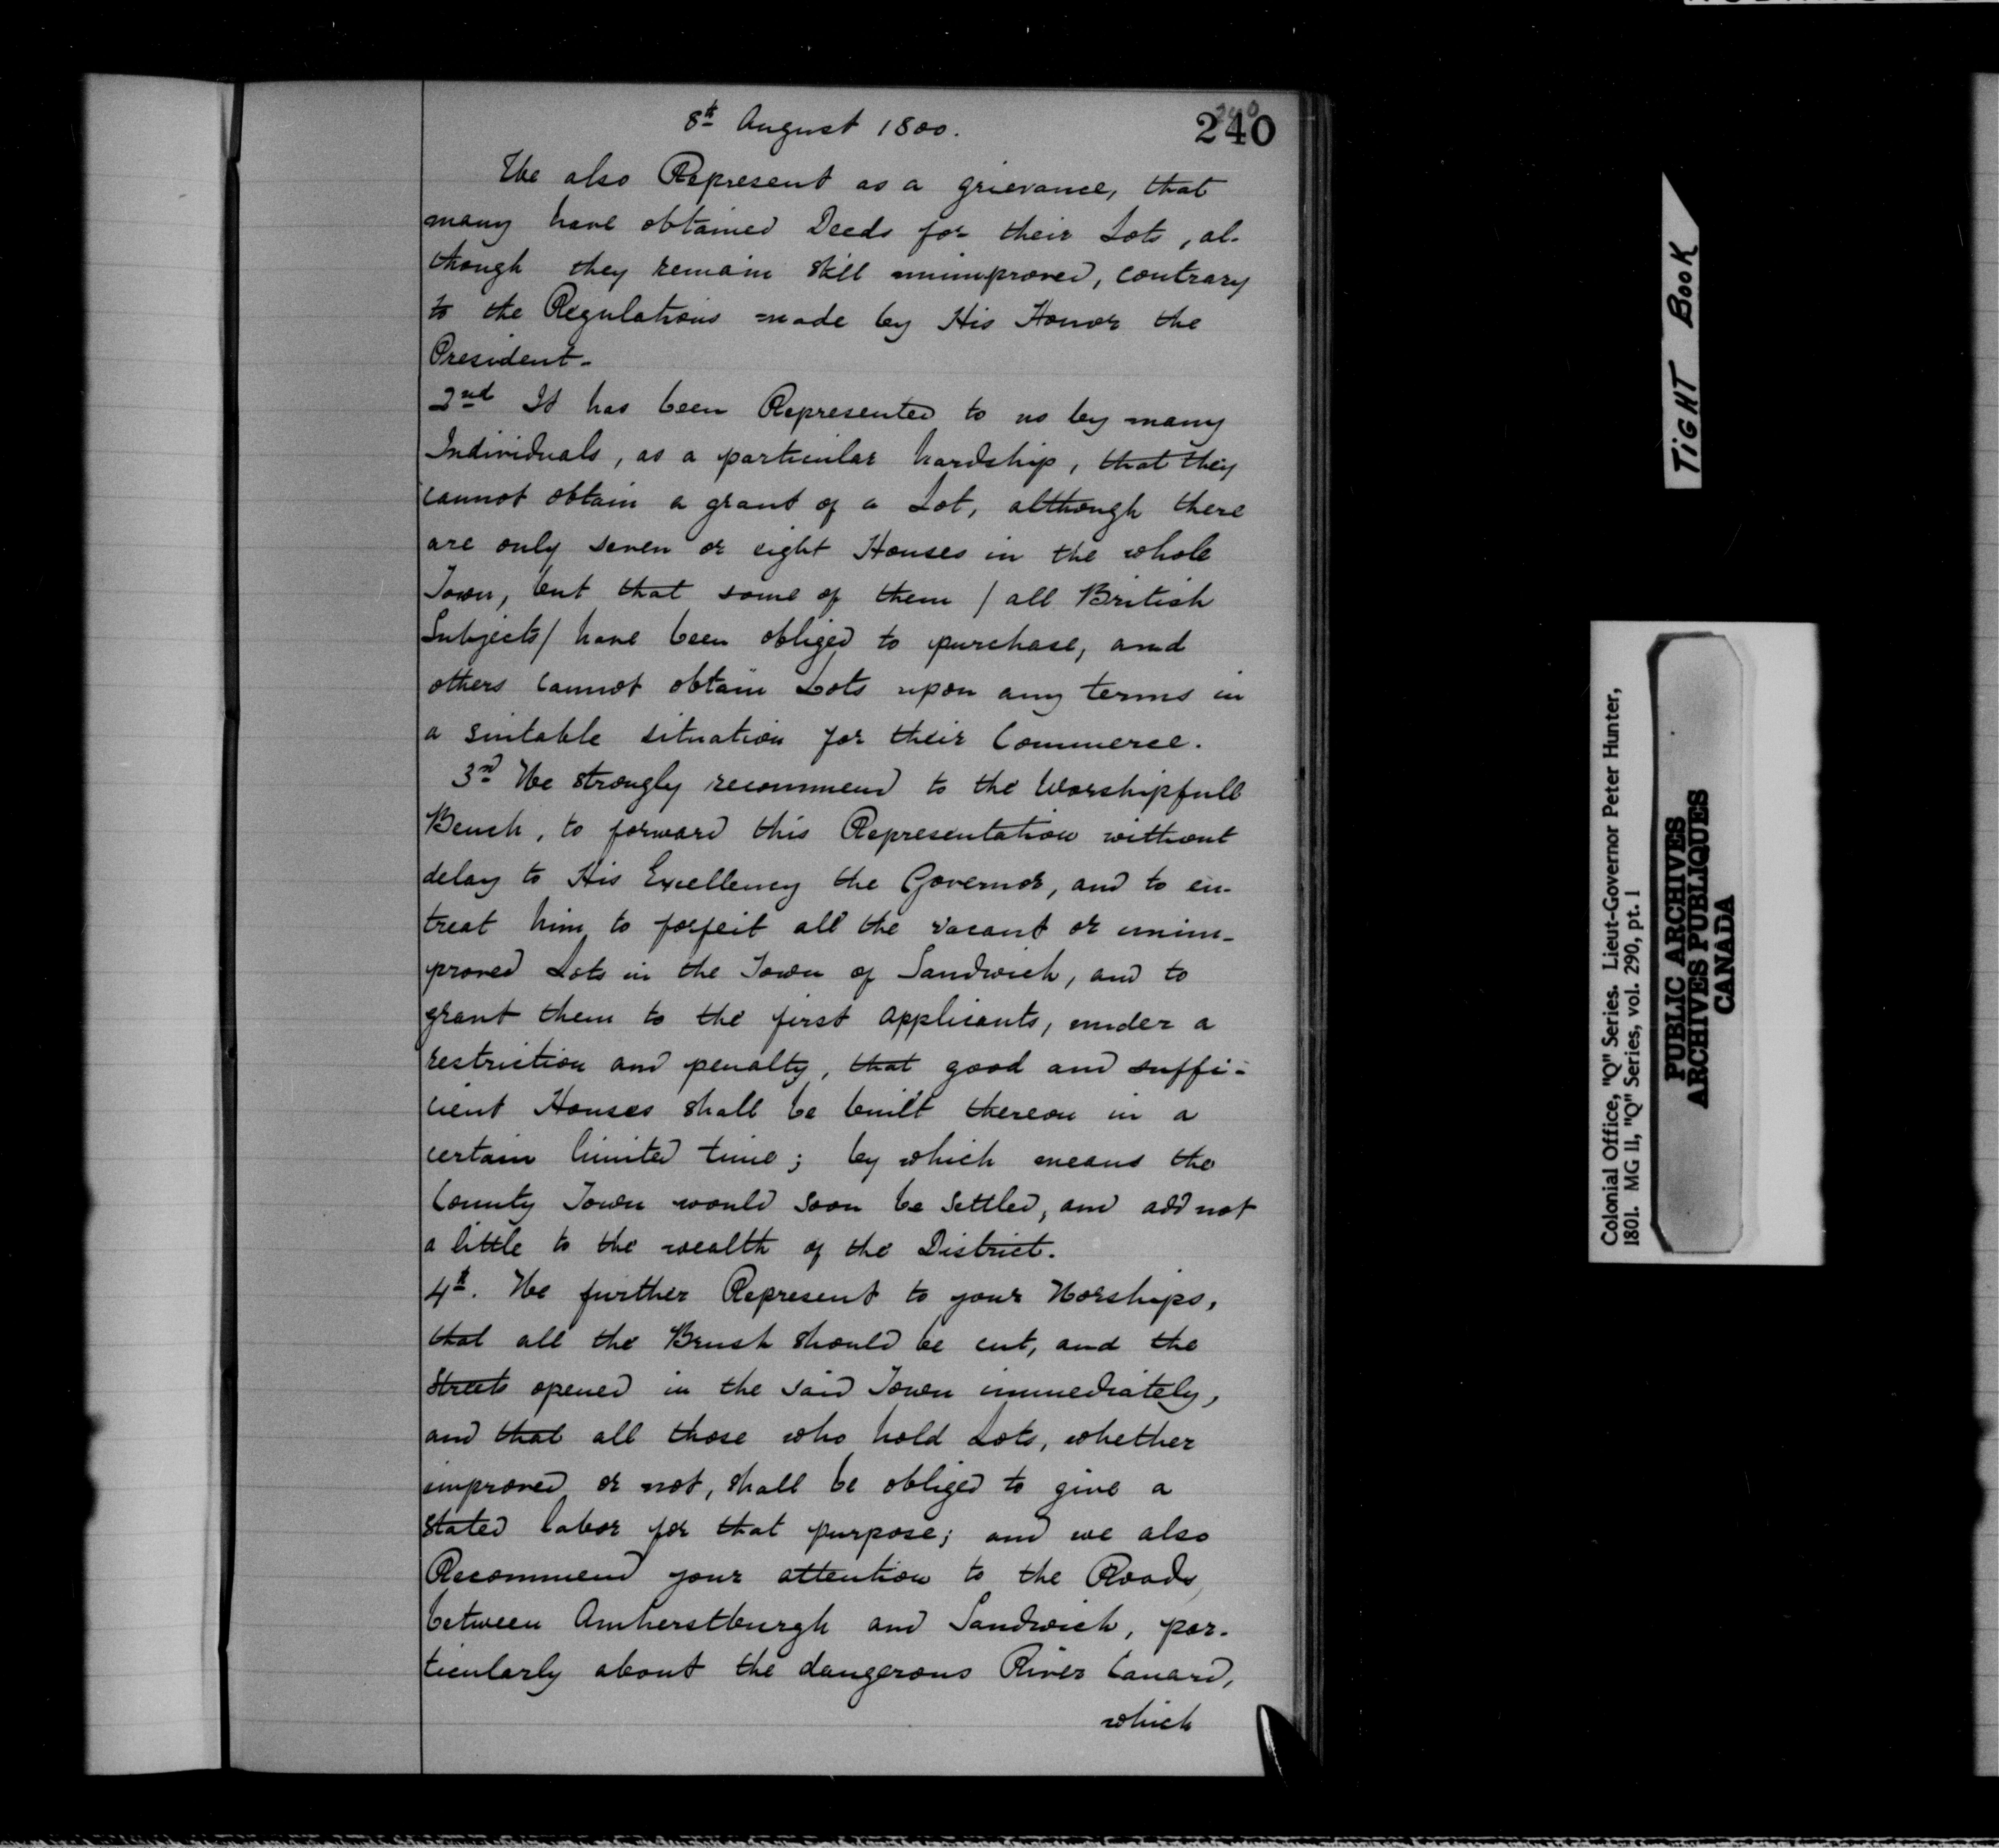 8th August 1800.
240
240
We also Represent as a grievance, that
many have obtained Deeds for their Lots, al-
though they remain still unimproved, contrary
to the Regulations made by His Honor the
President-
2nd It has been Represented to us by many
Individuals, as a particular hardship, that they
cannot obtain a grant of a Lot, although there
are only seven or eight Houses in the whole
Town, but that some of them / all British
Subjects/ have been obliged to purchase, and
others cannot obtain Lots upon any terms in
a suitable situation for their Commerce.
3rd We strongly recommend to the Worshipfull
Bench, to forward this Representation without
delay to His Excellency the Governor, and to en-
treat him to forfeit all the vacant or unim-
proved Lots in the Town of Sandwich, and to
grant them to the first applicants, under a
restriction and penalty, that good and suffi-
cient Houses shall be built thereon in a
certain limited time; by which means the
County Town would soon be settled, and add not
a little to the wealth of the District.
4th. We further Represent to your Worships,
that all the Brush should be cut, and the
Streets opened in the said Town immediately,
and that all those who hold Lots, whether
improved or not, shall be obliged to give a
stated labor for that purpose; and we also
Recommend your attention to the Roads
between Amherstburgh and Sandwich, par-
ticularly about the dangerous River Canard,
which
TIGHT BOOK
Colonial Office, "Q" Series. Lieut-Governor Peter Hunter,
1801. MG 11, "Q" Series, vol. 290, pt. 1
PUBLIC ARCHIVES
ARCHIVES PUBLIQUES
CANADA